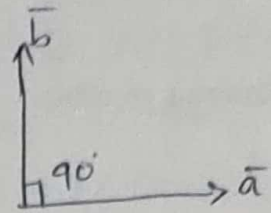 b̅
90°
a̅